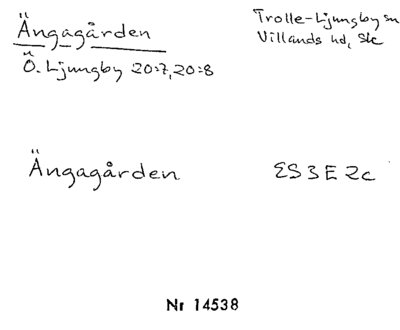 Ängagården
Trolle-Ljungby sn
Villands hd, Sk
Ö. Ljungby 20:7, 20:8
Ängagården
ES 3 E 2c
Nr 14538